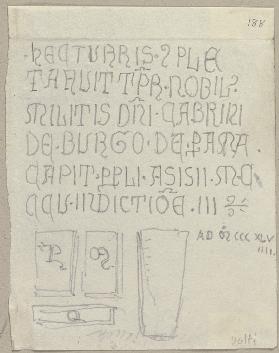 188
·HECTUARIS·⁊ PLE
TAHUIT TPR·NOBIL⁊
MILITIS DÑI·GABRIRI
DE·BURGO·DE·PAMA·
CAPIT·PPLI·ASISII·MC
CCV·INDICTIÕE·III
A·D·M̃ CCC XLV
IIII·
volti